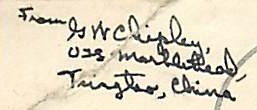 From
G W Chipley,
USS Marblehead,
Tsingtao, China